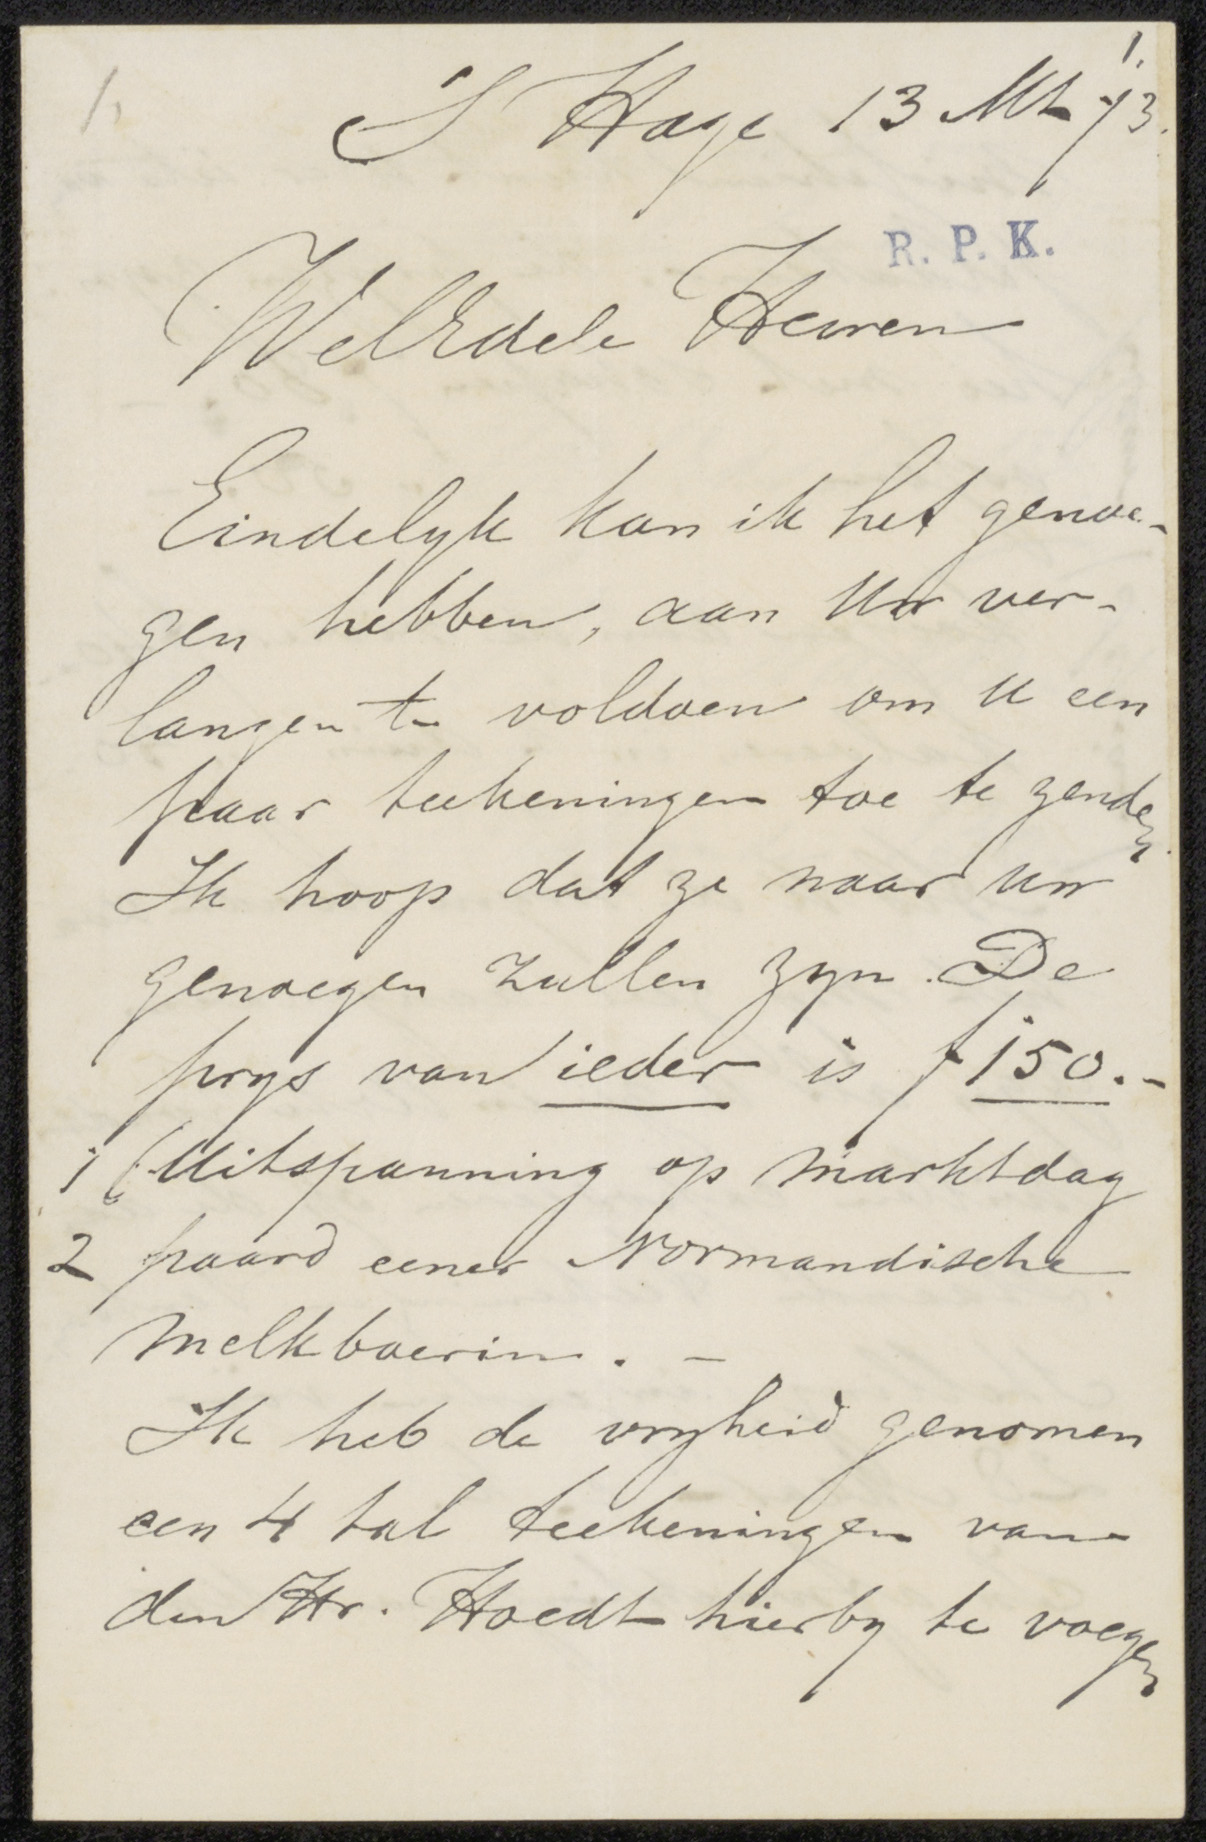 1.
1.
S Hage 13 Mt 73.
R. P. K.
WelEdele Heeren
Eindelyk kan ik het genoe-
gen hebben, aan Uw ver-
langen te voldoen om U een
paar teekeningen toe te zenden
Ik hoop dat ze naar uw
genoegen zullen zyn. De
prys van ieder is f 150.-
1 Uitspanning op marktdag
2 paard eener Normandische
melkboerin. -
Ik heb de vryheid genomen
een 4 tal teekeningen van
den Hr. Hoedt hierby te voegen